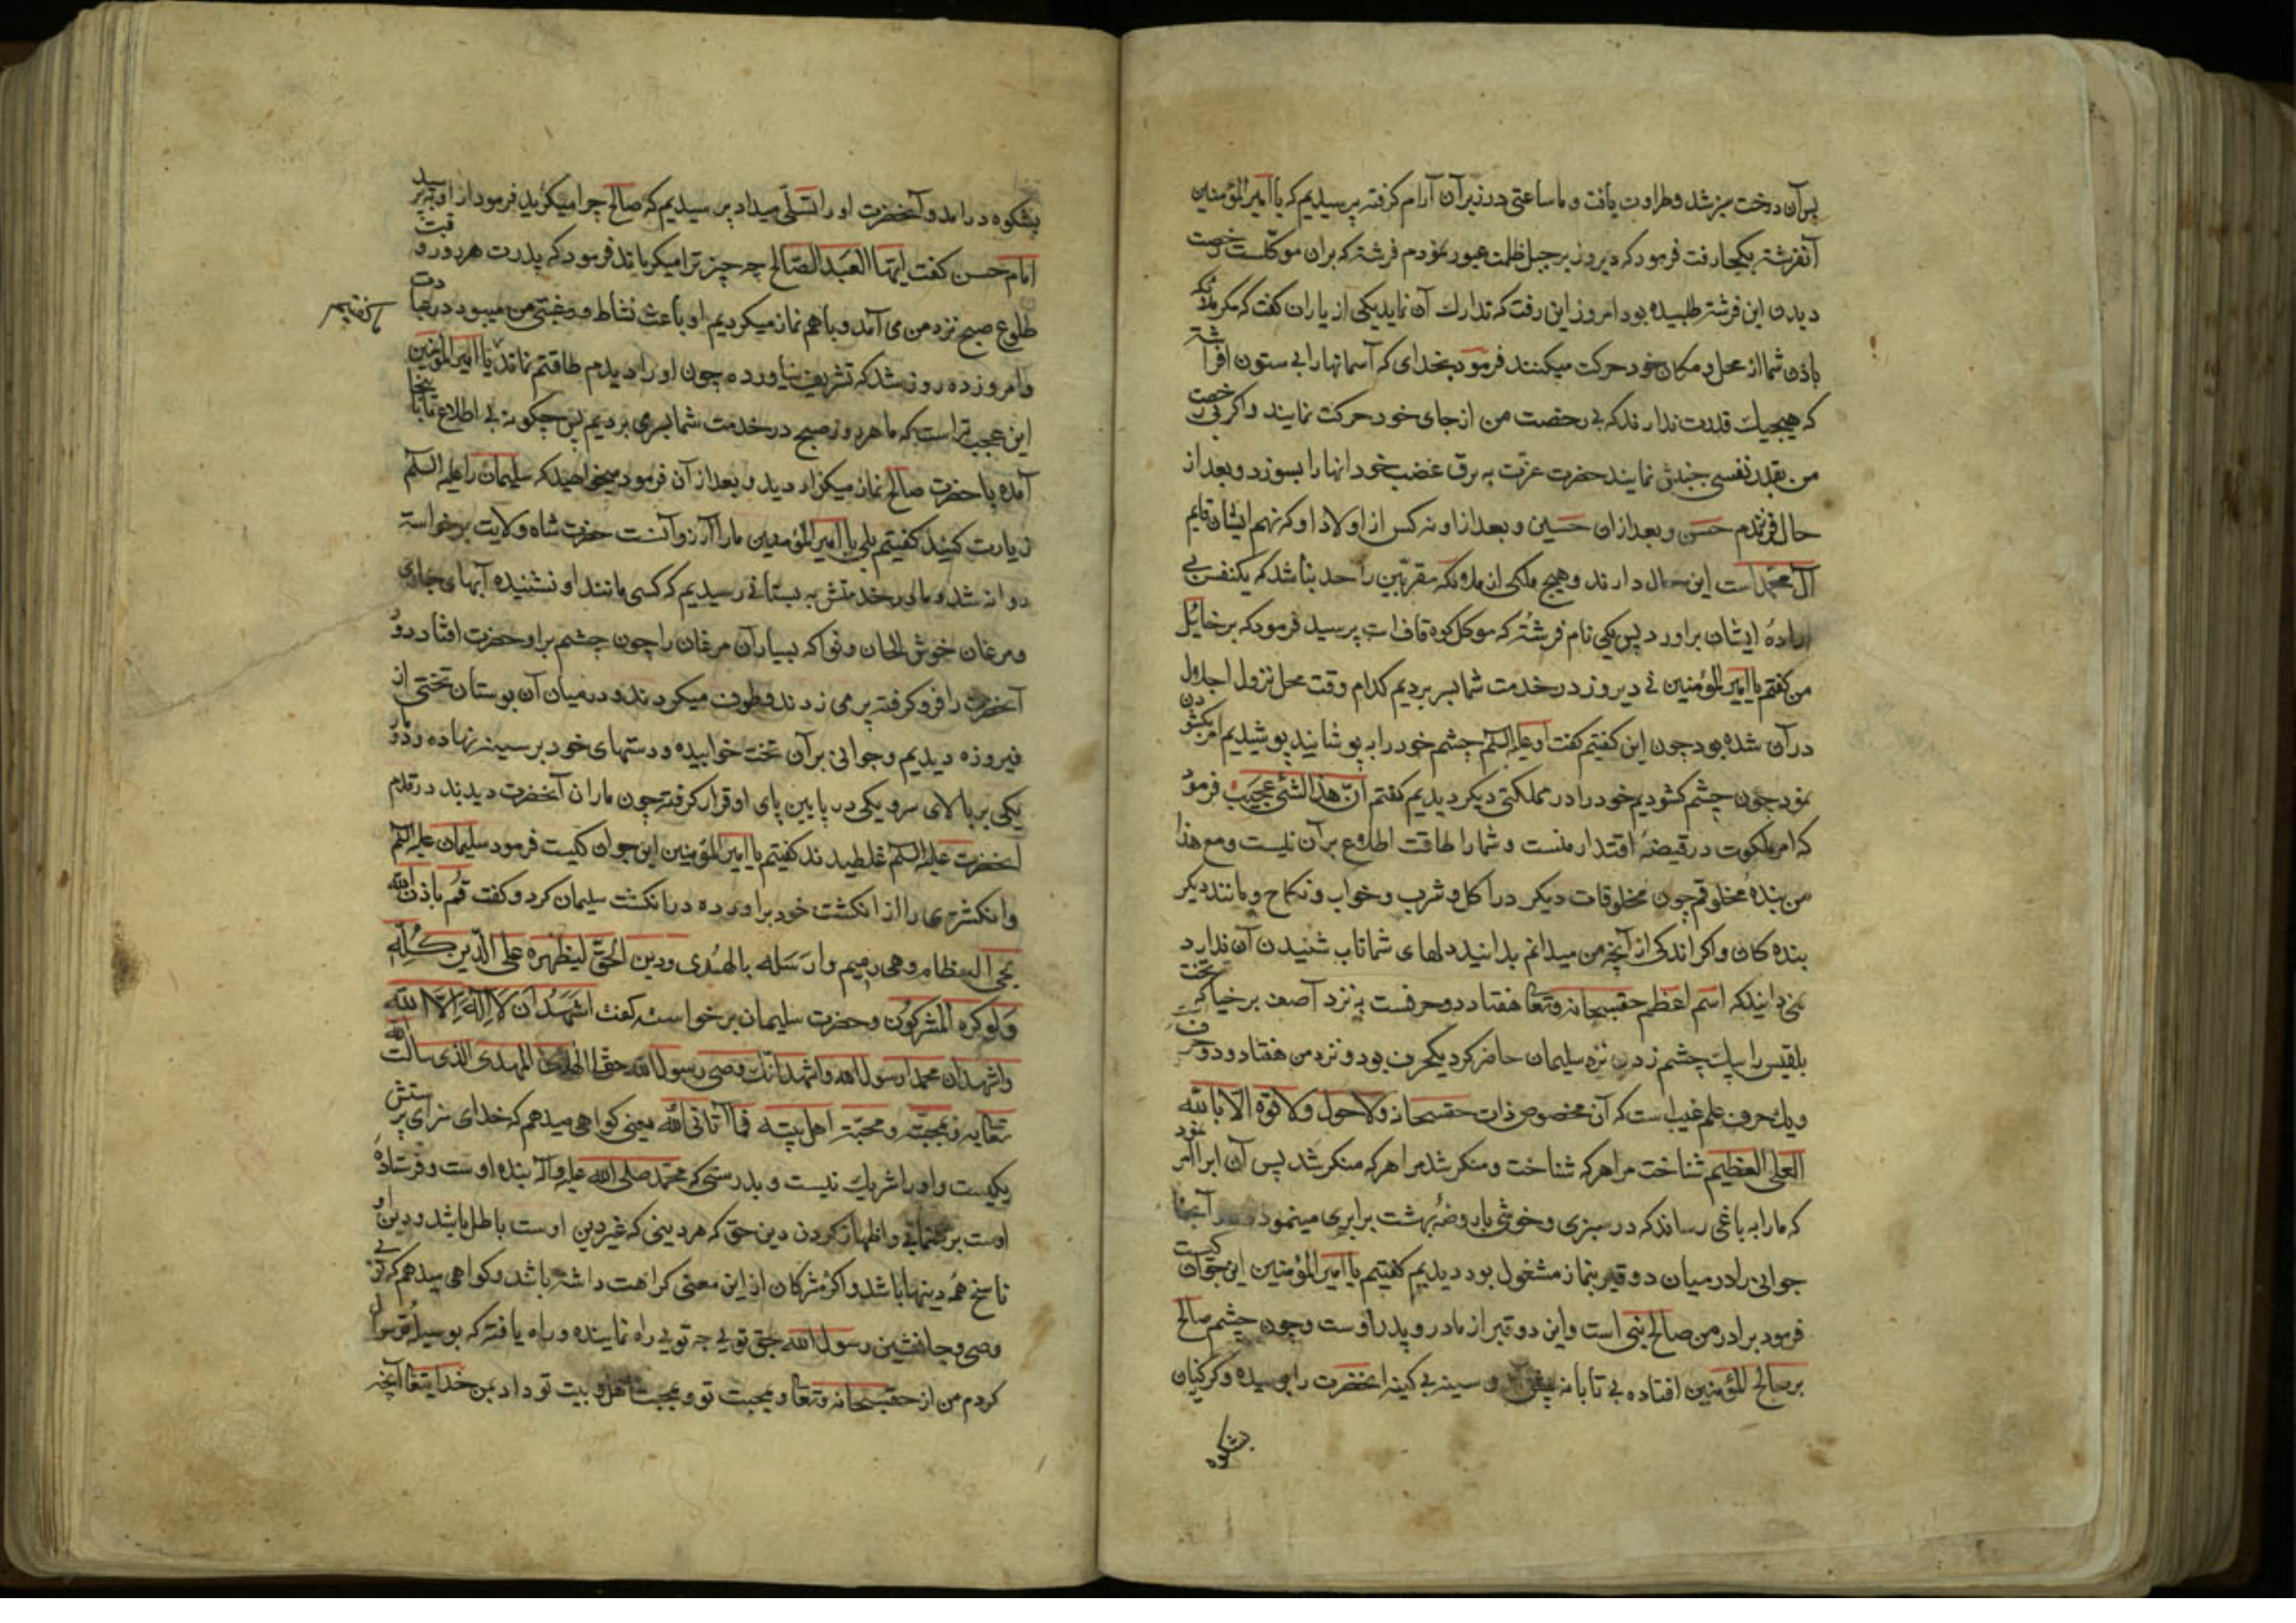 پس آن درخت سبز شد و طراوت یافت و ما ساعتی در زیر آن آرام گرفته پرسیدیم که یا امیرالمؤمنین
آنفرشته بکجا رفت فرمود که دیروز بر جبل ظلمت عبور نمودم فرشته که بران موکلست رخصت
دیدن این فرشته طلبیده بود امروز این رفت که تدارک آن نماید یکی از یاران گفت که مگر ملائکه
باذن شما از محل و مکان خود حرکت میکنند فرمود بخدای که آسمانها را بی ستون افراشته
که هیچیک قدرت ندارند که بی رخصت من از جای خود حرکت نمایند و اگر بی رخصت
من بقدر نفسی جنبش نمایند حضرت عزت به برق غضب خود انها را بسوزد و بعد از
حال فرزندم حسن و بعد ازان حسین و بعد از او نه کس از اولاد او که نهم ایشان قایم
آل محمد است این حال دارند و هیچ ملکی از ملائکه مقربین را حد نباشد که یکنفس بی
اراده ایشان براورد پس یکی نام فرشته که موکل کوه قاف است پرسید فرمود که برخائیل
من کفتم یا امیرالمؤمنین نی دیروز در خدمت شما بسر بردیم کدام وقت محل نزول اجلال
در آن شده بود چون این کفتیم کفت او علیه السلم چشم خود را به پوشانید پوشیدیم امر بکشودن
نمود چون چشم کشودیم خود را در مملکتی دیکر دیدیم کفتم ان هذا لشئ عجیب فرمود
که امر ملکوت در قبضه اقتدار منست و شما را طاقت اطلاع بر آن نیست و مع هذا
من بنده مخلوقم چون مخلوقات دیکر در اکل و شرب و خواب و نکاح و مانند دیکر
بنده کان و اکر اندکی از آنچه من میدانم بدانید دلهای شما تاب شنیدن آن ندارد
نمی دانید که اسم اعظم حقسبحانه و تعا هفتاد دو حرفست به نزد آصف برخیا که تخت
بلقیس را بیک چشم زدن نزد سلیمان حاضر کرد یکحرف بود و نزد من هفتاد و دو حرف
ویک حرف علم غیب است که آن مخصوص ذات حقسبحانه ولا حول ولا قوة الا بالله
العلی العظیم شناخت مرا هر که شناخت و منکر شد مرا هر که منکر شد پس آن ابر را امر نمود
که ما را به باغی رساند که در سبزی و خوشی با روضه بهشت برابری مینمود آنجا
جوانی را در میان دو قبر بنماز مشغول بود دیدیم کفتیم یا امیرالمؤمنین این جوان کیست
فرمود برادر من صالح نبی است و این دو قبر از مادر و پدر اوست و چون چشم صالح
بر صالح المؤمنین افتاده بی تابانه پیش و سینه بی کینه انحضرت را بوسیده و کرکنیان
بشکوه
بشکوه درامد و آنحضرت او را تسلی میداد پرسیدیم که صالح چرا میکرید فرمود از او بپرسید
امام حسن کفت ایها العبد الصالح چه چیز ترا میکریاند فرمود که پدرت هر روز وقت
طلوع صبح نزد من می آمد و باهم نماز میکردیم او باعث نشاط و رغبتی من میبود در عبادت
ما کفتیم
و امروز ده روز شد که تشریف نیاورده چون او را دیدم طاقتم نماند یا امیرالمؤمنین
این عجب تر است که ما هر روز صبح در خدمت شما بسر می بردیم پس چکونه بی اطلاع ما باینجا
آمده با حضرت صالح نماز میکزاردید و بعد از آن فرمود میخواهید که سلیمان را علیه السلم
زیارت کنید کفتیم بلی یا امیرالمؤمنین ما را آرزو آنست حضرت شاه ولایت برخواسته
روانه شد و ما در خدمتش به بستانی رسیدیم که کسی مانند او نشنیده آبهای جاری
و مرغان خوش الحان و نوا که بسیار آن مرغان را چون چشم بر او حضرت افتاد دور
آنحضرت را فرو کرفته پر می زدند و طوف میکردند و در میان آن بوستان تختی از
فیروزه دیدیم و جوانی بر آن تخت خوابیده و دستهای خود بر سینه نهاده و دو مار
یکی بر بالای سر و یکی در پایین پای او قرار کرفته چون ماران آنحضرت دیدند در قدم
انحضرت علیه السلم غلطیدند کفتیم یا امیرالمؤمنین این جوان کیست فرمود سلیمان علیه السلم
و انکشتری را از انکشت خود براورده در انکشت سلیمان کرد و کفت قم باذن الله
یحی العظام وهی رمیم وارسله بالهدی ودین الحق لیظهره علی الدین کله
ولو کره المشرکون و حضرت سلیمان برخواسته کفت اشهد ان لا اله الا الله
واشهد ان محمدا رسول الله واشهد انک وصی رسول الله حقا الهادی المهدی الذی سالت الله
تعا به و بمحبته و محبة اهل بیته فما آتانی الله یعنی کواهی میدهم که خدای سزای پرستش
یکیست و او را شریک نیست و بدرستی که محمد صلی الله علیه و اله بنده اوست و فرستاده
اوست بر رهنمایی و اظهار کردن دین حق که هر دینی که غیر دین اوست باطل باشد و دین او
ناسخ همه دینها باشد و اکر مشرکان از این معنی کراهت داشته باشد و کواهی میدهم که تویی
وصی و جانشین رسول الله بحق تویی چه تویی راه نماینده و راه یافته که بوسیله تو سوال
کردم من از حقسبحانه و تعا و بمحبت تو و بمحبت اهل و بیت تو داد بمن خدایتعا آنچه